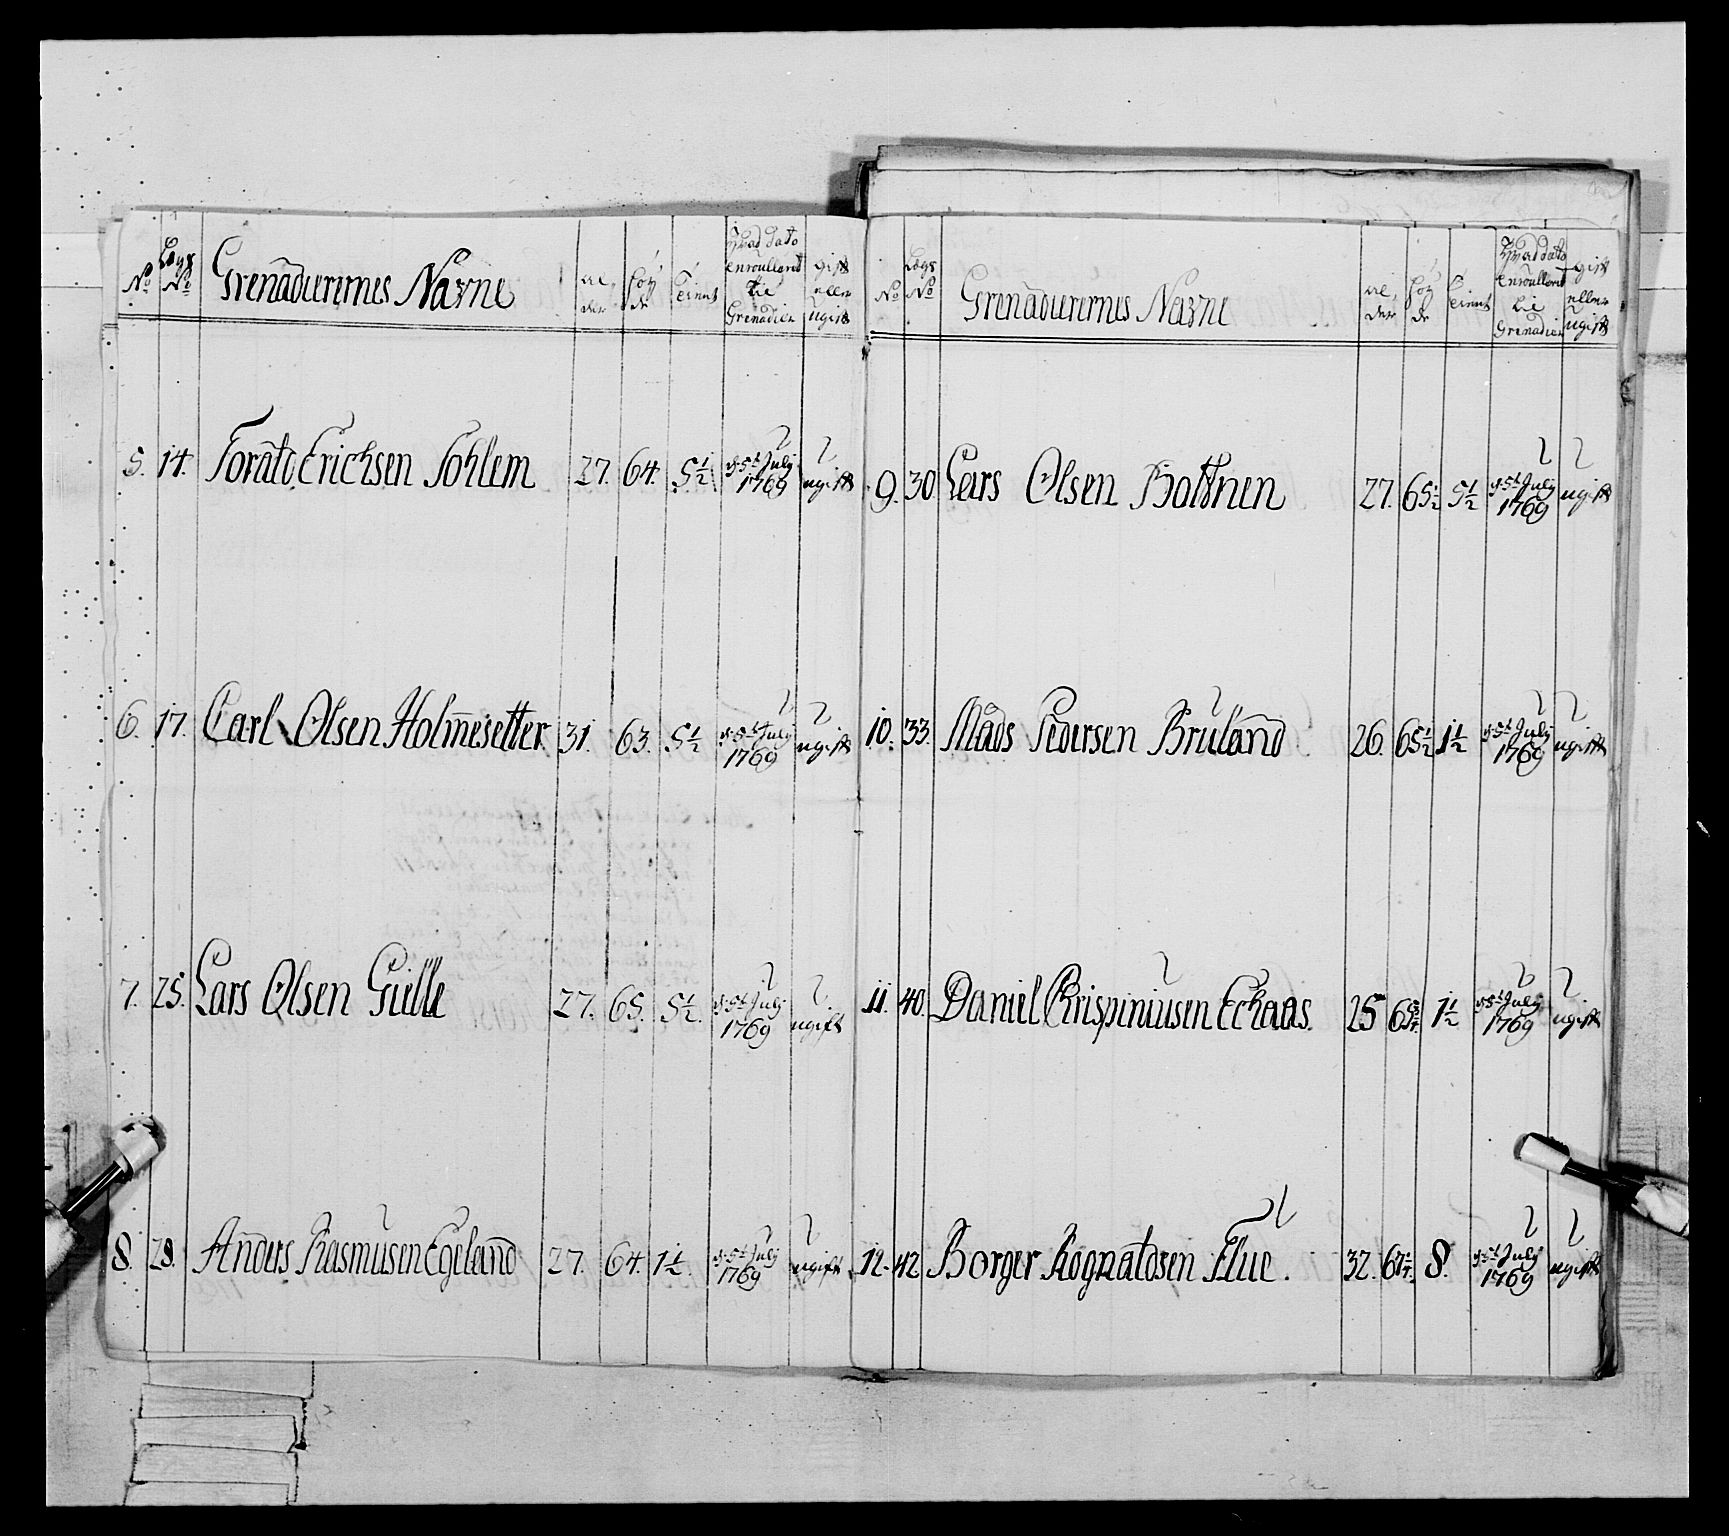 No Lægs No Grenaderernes Navne Al der Höy de Tient Hvad dato enroulleret til Grenadier gift eller ugift
5. 14. Erichsen Sohlem 27. 64. 5½ d. 5t July 1769 ugift
6. 17. Carl Olsen Holmesetter 31. 63. 5½ d. 5t July 1769 ugift
7. 25. Lars Olsen Gielle 27. 65. 5½. d. 5t July 1769 ugift
8. 28. Anders Rasmusen Egeland 27. 64. 1½. d. 5t July 1769 ugift
No Lægs No Grenaderernes Navne Al der Höy de Tient Hvad dato Enroulleret til Grenadier gift eller ugift
9. 30. Lars Olsen Bottnen 27. 65½ 5½ d. 5t July 1769 ugift
10. 33. Mads Pedersen Bruland 26. 65½ 1½ d. 5t July 1769 ugift
11. 40. Daniel Crispiniusen Eckaas. 25 1½ d. 5t July 1769 ugift
12. 42 Borger Rognaldsen Flue. 32. 67¼. 8. d. 5t July 1769 ugift